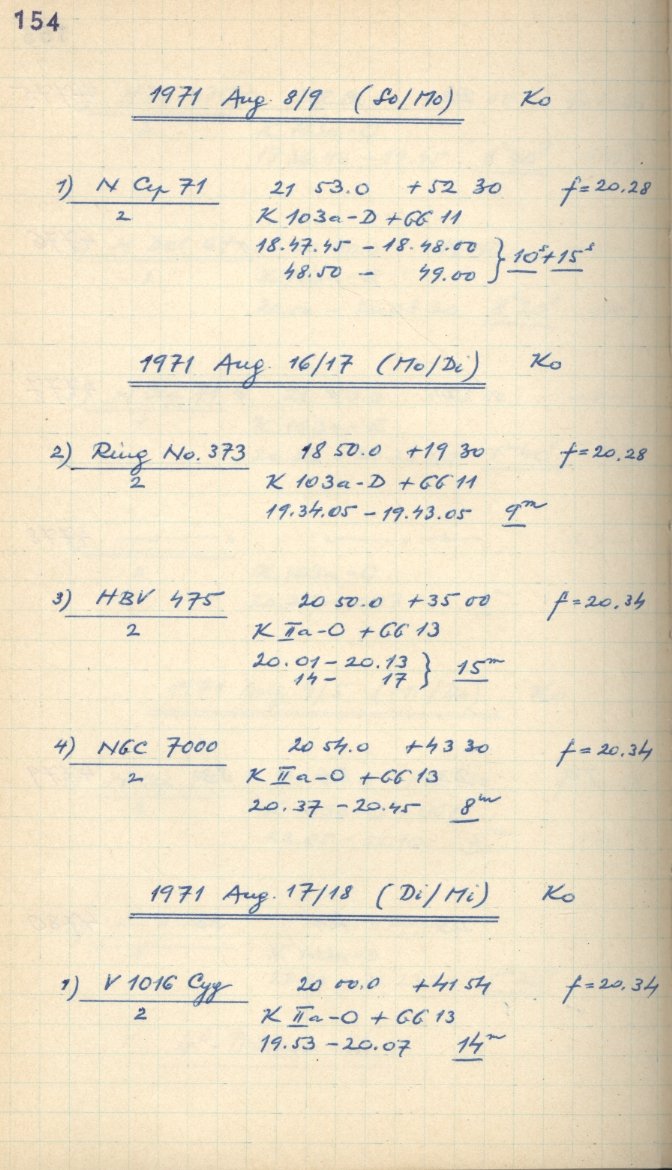 154
1971 Aug. 8/9 (So/Mo) Ko
1) N Cep 71 21 53.0 +52 30 f=20.28
2 K 103a-D + GG 11
18.47.45 - 18.48.00 } 10s+15s
48.50 - 49.00
1971 Aug. 16/17 (Mo/Di) Ko
2) Ring No. 373 18 50.0 +19 30 f=20.28
2 K 103a-D + GG 11
19.34.05 - 19.43.05 9m
3) HBV 475 20 50.0 +35 00 f=20.34
2 K IIa-O + GG 13
20.01 - 20.13 } 15m
14 - 17
4) NGC 7000 20 54.0 +43 30 f=20.34
2 K IIa-O + GG 13
20.37 - 20.45 8m
1971 Aug. 17/18 (Di/Mi) Ko
1) V 1016 Cyg 20 00.0 +41 54 f=20.34
2 K IIa-O + GG 13
19.53 - 20.07 14m